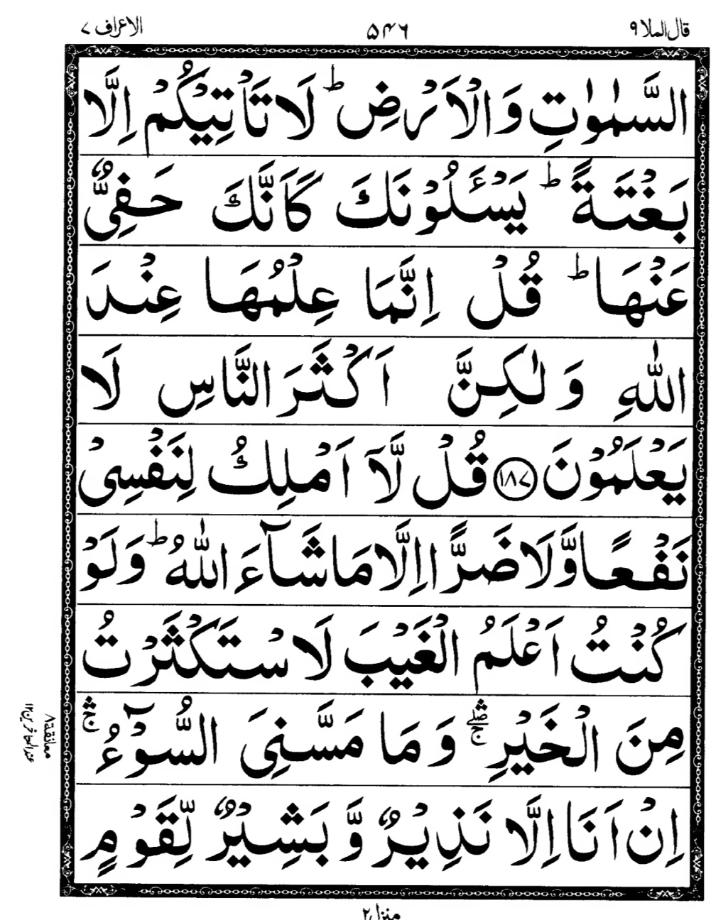 قال الملا ٩ ۵۴۶ الاعراف ٧
السَّمٰوٰتِ وَالْاَرْضِ ؕ لَا تَاْتِيْكُمْ اِلَّا
بَغْتَةً ؕ يَسْـَٔلُوْنَكَ كَاَنَّكَ حَفِيٌّ
عَنْهَا ؕ قُلْ اِنَّمَا عِلْمُهَا عِنْدَ
اللّٰهِ وَلٰكِنَّ اَكْثَرَ النَّاسِ لَا
يَعْلَمُوْنَ ﴿١٨٧﴾ قُلْ لَّاۤ اَمْلِكُ لِنَفْسِيْ
نَفْعًا وَّلَا ضَرًّا اِلَّا مَا شَآءَ اللّٰهُ ؕ وَلَوْ
كُنْتُ اَعْلَمُ الْغَيْبَ لَاسْتَكْثَرْتُ
مِنَ الْخَيْرِ ۛ وَمَا مَسَّنِيَ السُّوْٓءُ ۛ
اِنْ اَنَا اِلَّا نَذِيْرٌ وَّ بَشِيْرٌ لِّقَوْمٍ
معانقة ٨
منزل ٢